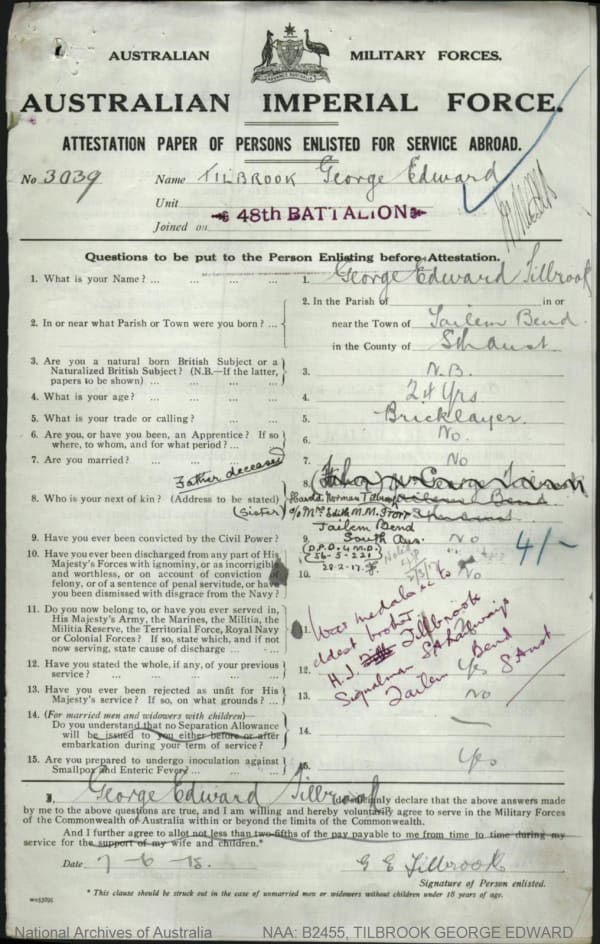 AUSTRALIAN MILITARY FORCES.
ADVANCE AUSTRALIA
AUSTRALIAN IMPERIAL FORCE.
ATTESTATION PAPER OF PERSONS ENLISTED FOR SERVICE ABROAD.
No 3039 Name TILBROOK George Edward
Unit
48th BATTALION
Joined on
Questions to be put to the Person Enlisting before Attestation.
1. What is your Name? ... ... ... ... 1. George Edward Tilbrook
2. In or near what Parish or Town were you born? ... 2. In the Parish of in or
near the Town of Tailem Bend
in the County of Sth Aust
3. Are you a natural born British Subject or a
Naturalized British Subject? (N.B.—If the latter,
papers to be shown) ... ... ... ... 3. N.B.
4. What is your age? ... ... ... ... 4. 24 Yrs
5. What is your trade or calling? ... ... ... 5. Bricklayer.
6. Are you, or have you been, an Apprentice? If so
where, to whom, and for what period? ... ... 6. No.
7. Are you married? ... ... ... ... 7. No
Father deceased
8. Who is your next of kin? (Address to be stated) 8.
(Sister) Harold Norman Tilbrook Tailem Bend
c/o Mrs Edith M.M. Sth Aust
Tailem Bend
South Aus.
9. Have you ever been convicted by the Civil Power? 9. No 4/-
(D.P.O. 4 M.D.
56-5-221
28-2-17.
10. Have you ever been discharged from any part of His
Majesty's Forces with ignominy, or as incorrigible
and worthless, or on account of conviction of
felony, or of a sentence of penal servitude, or have
you been dismissed with disgrace from the Navy? 10. No
11. Do you now belong to, or have you ever served in,
His Majesty's Army, the Marines, the Militia, the
Militia Reserve, the Territorial Force, Royal Navy
or Colonial Forces? If so, state which, and if not
now serving, state cause of discharge ... ... 11.
War medals &c to
eldest brother
H.J. Tillbrook
Signalman SA Railways
Tailem Bend
S Aust
12. Have you stated the whole, if any, of your previous
service? ... ... ... ... 12. Yes
13. Have you ever been rejected as unfit for His
Majesty's service? If so, on what grounds? ... 13. No
14. (For married men and widowers with children)—
Do you understand that no Separation Allowance
will be issued to you either before or after
embarkation during your term of service? 14. —
15. Are you prepared to undergo inoculation against
Smallpox and Enteric Fever? ... ... ... 15. Yes
I, George Edward Tilbrook do solemnly declare that the above answers made
by me to the above questions are true, and I am willing and hereby voluntarily agree to serve in the Military Forces
of the Commonwealth of Australia within or beyond the limits of the Commonwealth.
And I further agree to allot not less than two-fifths of the pay payable to me from time to time during my
service for the support of my wife and children.*
Date 7-6-15. G E Tilbrook
Signature of Person enlisted.
* This clause should be struck out in the case of unmarried men or widowers without children under 18 years of age.
National Archives of Australia NAA: B2455, TILBROOK GEORGE EDWARD